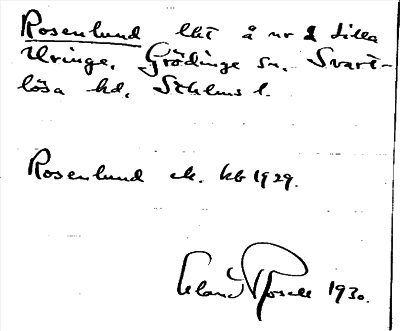 Rosenlund lht å nr 1 Lilla
Uringe, Grödinge sn. Svart-
lösa hd, Sthlms l.
Rosenlund ek. kb 1929.
1930.